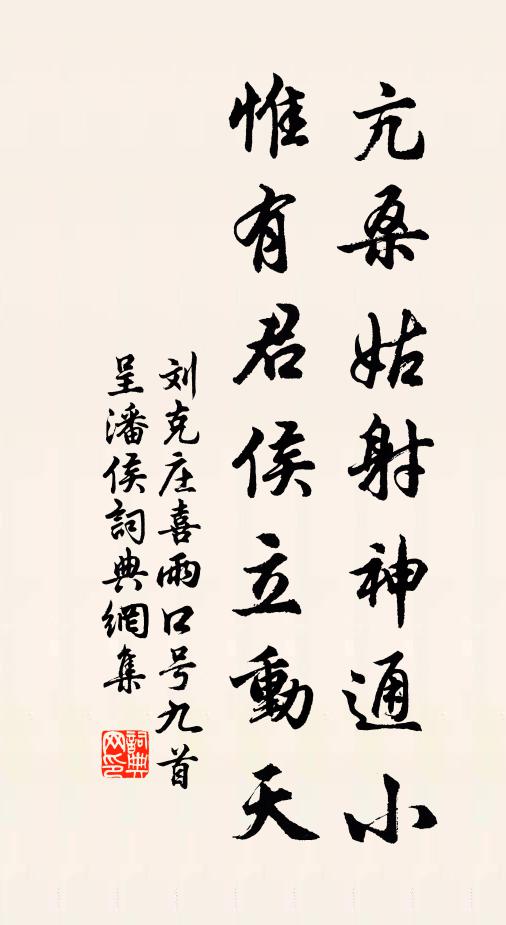 亢桑姑射神通小
惟有君侯立動天
刘克庄喜雨口号九首
呈潘侯詞典網集
詞典网印